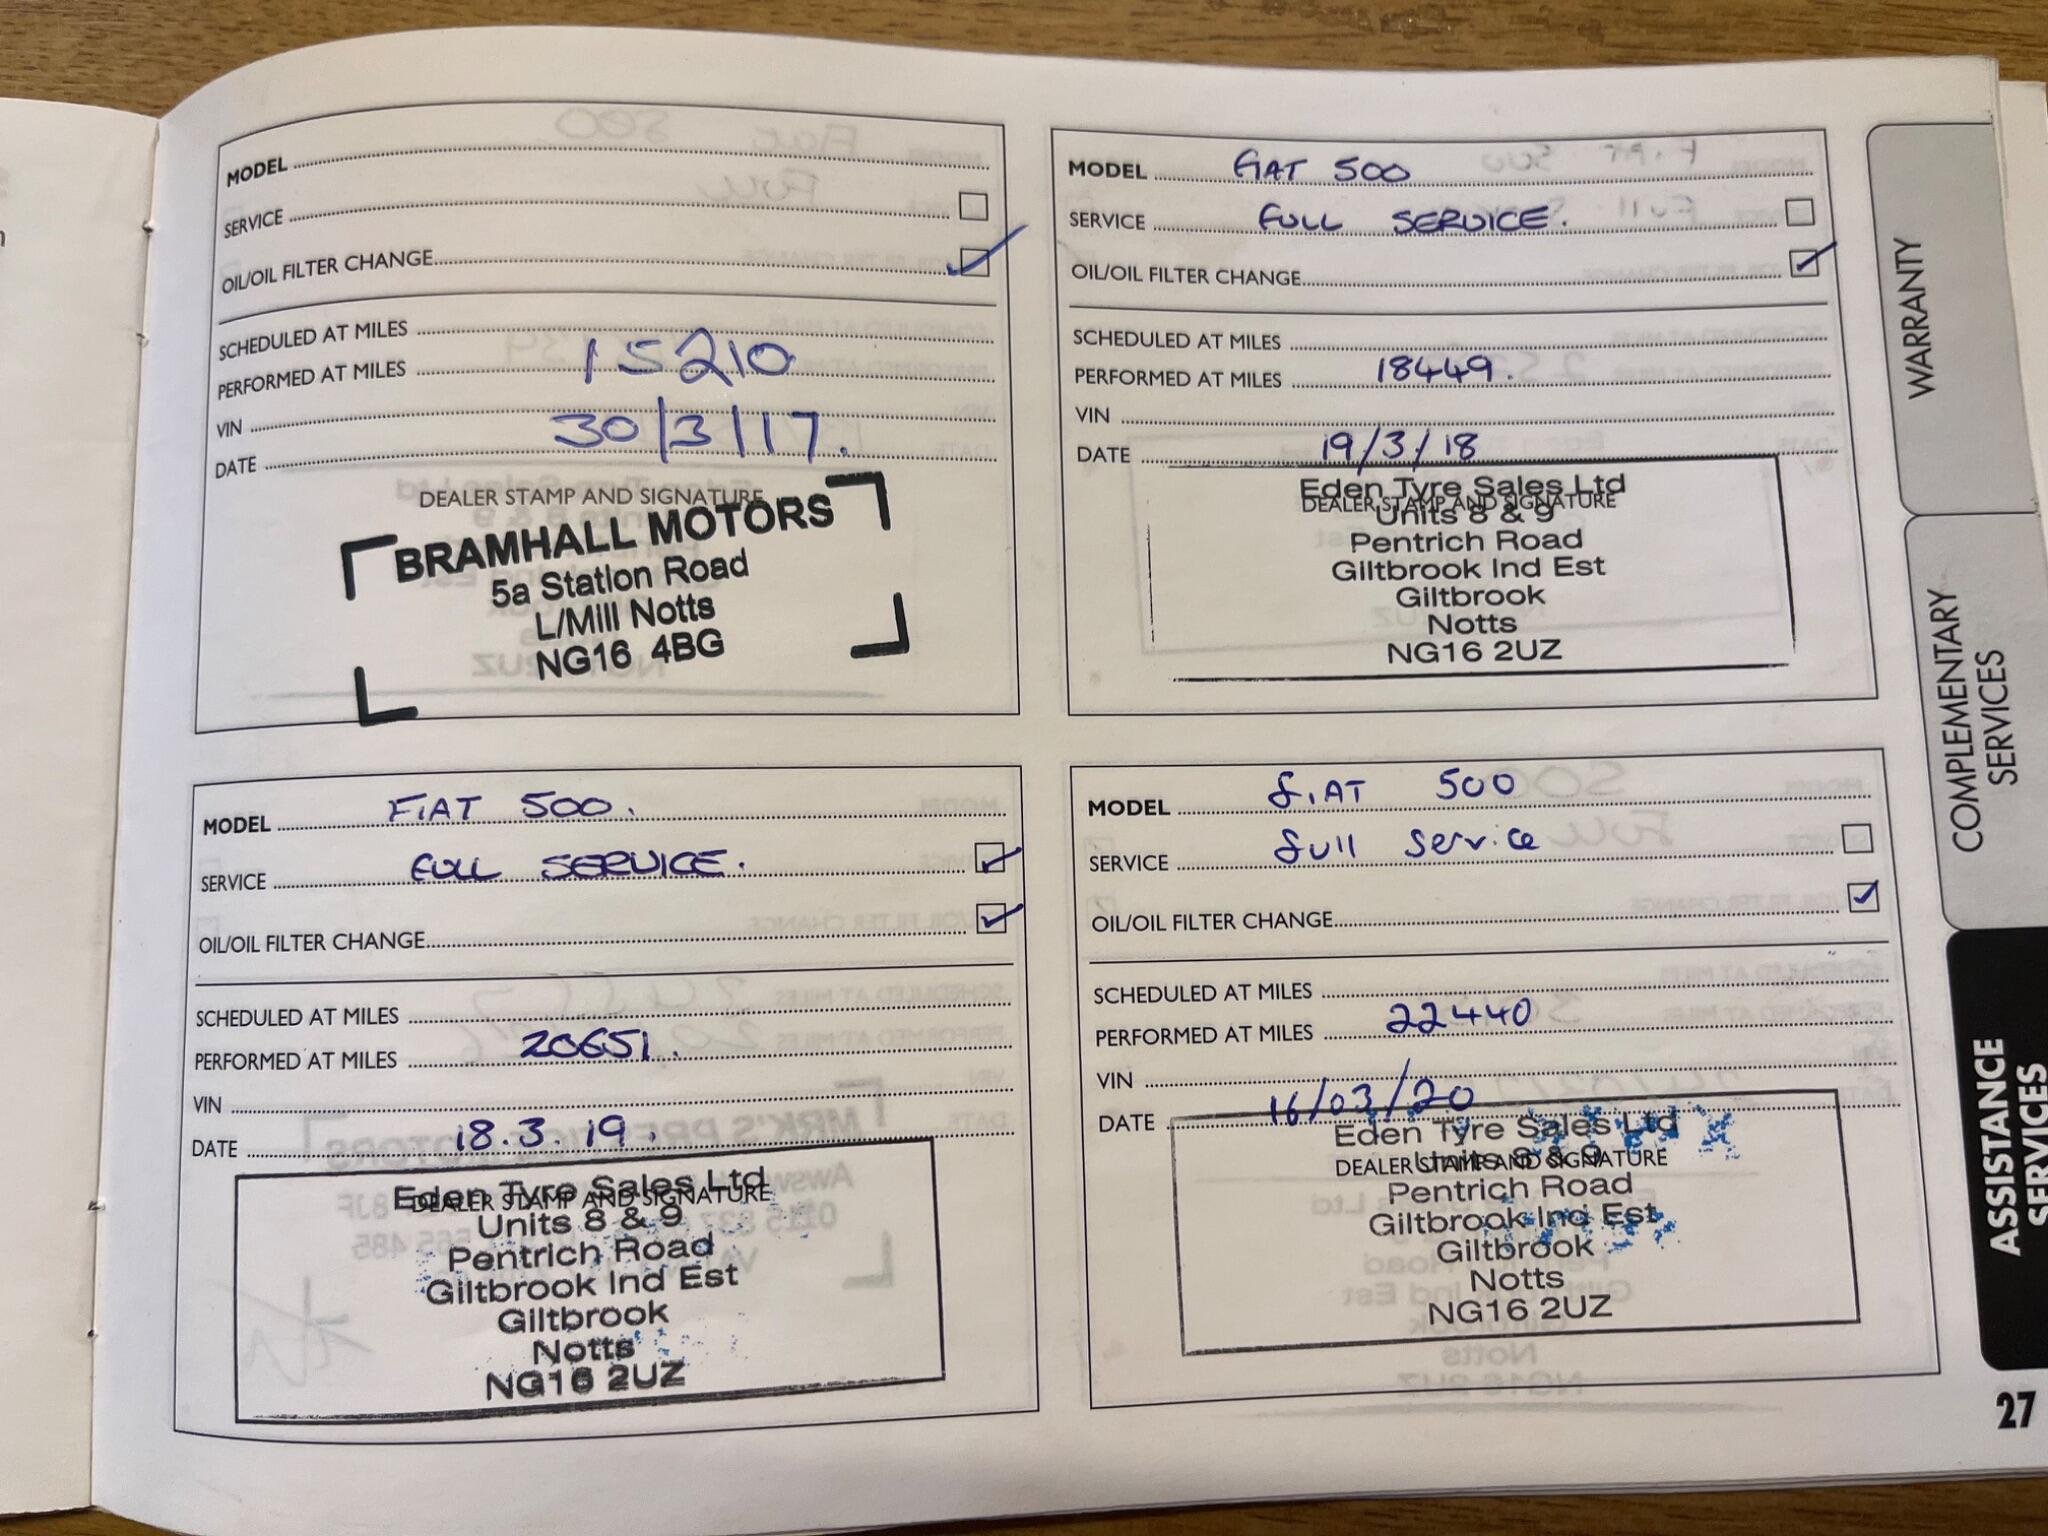 MODEL
SERVICE
OIL/OIL FILTER CHANGE
SCHEDULED AT MILES
PERFORMED AT MILES 15210
VIN
DATE 30/3/17.
DEALER STAMP AND SIGNATURE
BRAMHALL MOTORS
5a Station Road
L/Mill Notts
NG16 4BG
MODEL FIAT 500
SERVICE FULL SERVICE.
OIL/OIL FILTER CHANGE
SCHEDULED AT MILES
PERFORMED AT MILES 18449.
VIN
DATE 19/3/18
Eden Tyre Sales Ltd
DEALER STAMP AND SIGNATURE
Units 8 & 9
Pentrich Road
Giltbrook Ind Est
Giltbrook
Notts
NG16 2UZ
MODEL FIAT 500.
SERVICE FULL SERVICE.
OIL/OIL FILTER CHANGE
SCHEDULED AT MILES
PERFORMED AT MILES 20651.
VIN
DATE 18.3.19.
Eden Tyre Sales Ltd
DEALER STAMP AND SIGNATURE
Units 8 & 9
Pentrich Road
Giltbrook Ind Est
Giltbrook
Notts
NG16 2UZ
MODEL FIAT 500
SERVICE full service
OIL/OIL FILTER CHANGE
SCHEDULED AT MILES
PERFORMED AT MILES 22440
VIN
DATE 16/03/20
Eden Tyre Sales Ltd
Units 8 & 9
DEALER STAMP AND SIGNATURE
Pentrich Road
Giltbrook Ind Est
Giltbrook
Notts
NG16 2UZ
WARRANTY
COMPLEMENTARY
SERVICES
ASSISTANCE
SERVICES
27